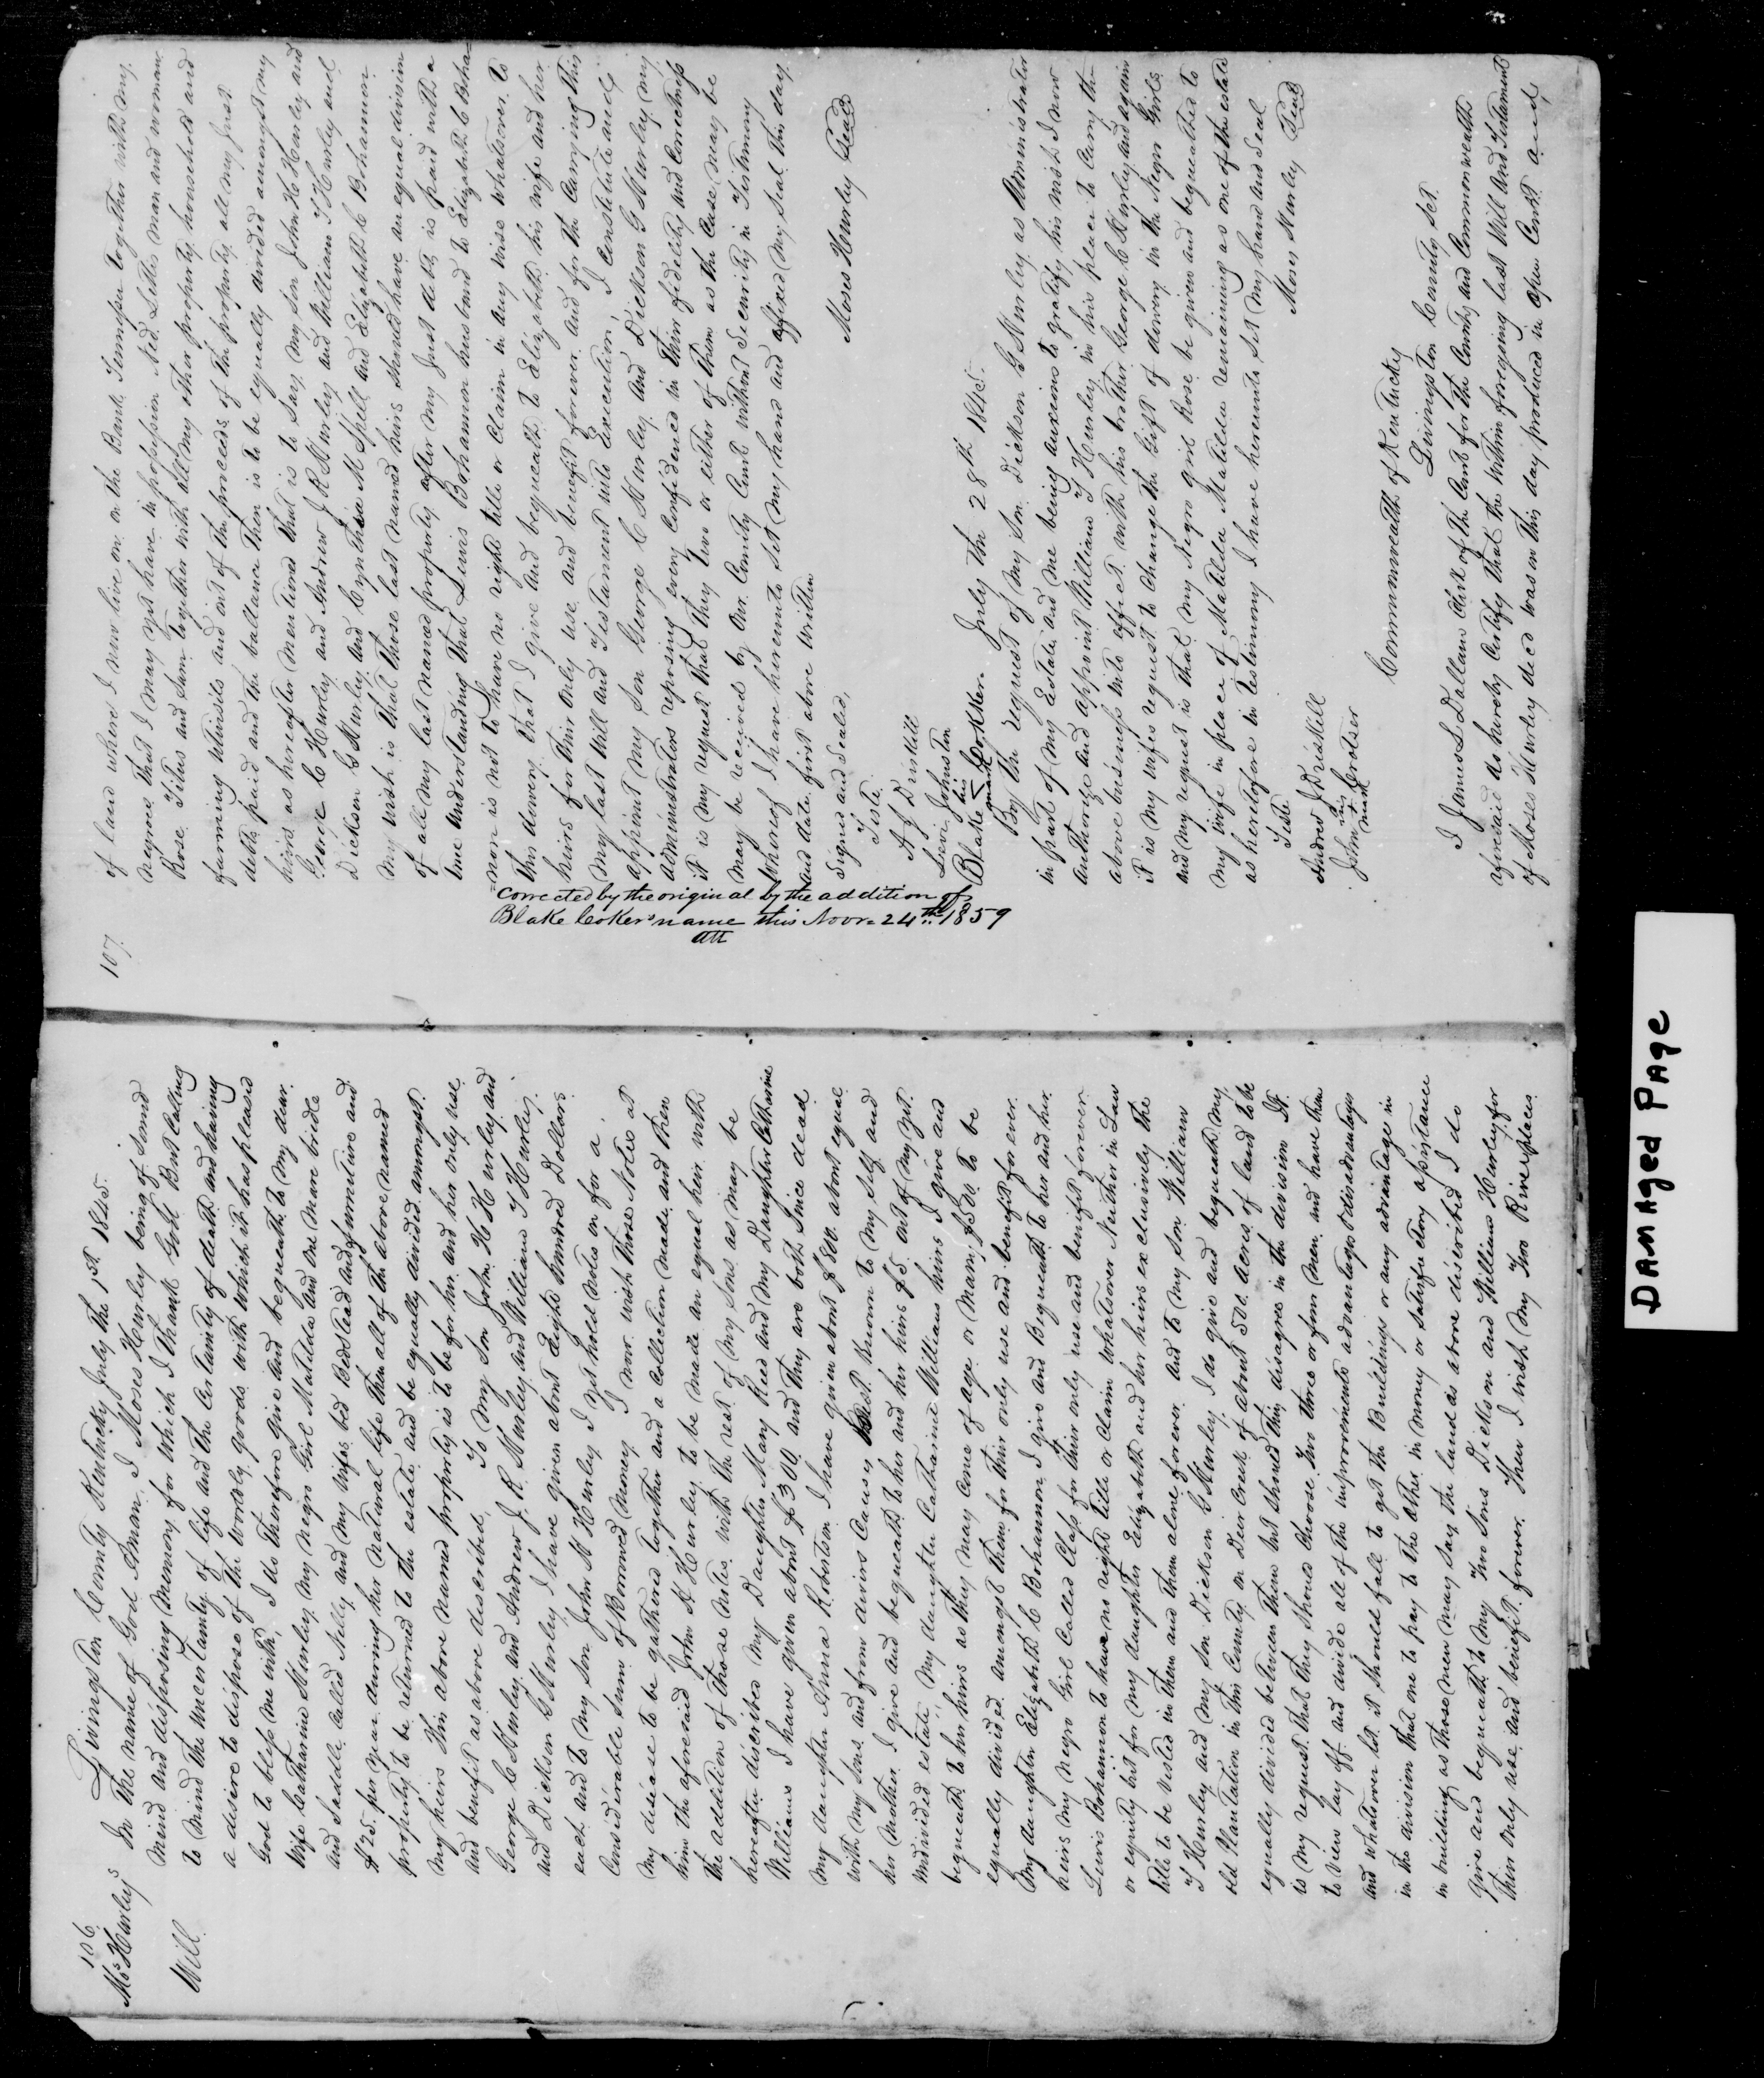 106
Mo.s Hurley's
Will
Livingston County Kentucky July the 1st 1845.
In the name of God Aman, I Moses Hurley being of sound
mind and disposing memory for which I thank God! But Calling
to mind the uncertainty of life and the certainty of death and having
a desire to dispose of the worldly goods with which it has pleased
God to bless me with, I do therefore give and bequeath to my dear
Wife Catharine Hurley my Negro Girl Matilda and one Mare bridle
and Saddle called Nelly and my wifes bed Beddstead and furnutive and
$25. per year during her natural life then all of the above named
property to be returned to the estate and be equally divided amongst
my heirs this above named property is to be for her and her only use
and benefit as above described, To my Son John H H Hurley and
George C Hurley and Andrew J. R. Hurley and William T Hurley
and Dickson G Hurley I have given about Eight hundred Dollars
each and to my Son John H Hurley I yet hold notes on for a
Considerable sum of Borrowed Money I now wish those Notes at
My decease to be gathered together and a Collection made and then
him the aforesaid John H Hurley to be made an equal heir with
the addition of those notes with the rest of my Sons as may be
hereafter describes My Daughter Mary Reed and my Daughter Catharine
Williams I have given about $300 and they are both Since dead
My daughter Anna Robertson I have given about $800. about equal
with my Sons and from divirs Causes Best. Known to My Self and
her Mother I give and bequeath to her and her heirs $5. out of my yet
undivided estate My daughter Catharine Williams heirs I give and
bequeath to her heirs as they may come of age or Many $500. to be
equally divided amongst them for their only use and benefit for ever.
My daughter Elizabeth C Bohannon I give and Bequeath to her and her
heirs my Negro Girl Called Class for their only use and benifit forever
Lewis Bohannon to have no right Title or Claim whatsoever Neither in Law
or equity but for my daughter Elizabeth and her heirs exclusively the
title to be vested in them and them alone forever and to my Son William
T Hurley and my Son Dickson G Hurley I do give and bequeath my
old Plantation in this County on Deer Creek of about 500. acres of land to be
equally divided between them but should they disagree in the division It
is my request that they should choose two three or four men and have them
to view lay off and divide all of the improvements advantages & disadvantages
and whatsoever lot it should fall to get the Buildings or any advantage in
in the division that one to pay to the other in money or satisfactory assistance
in building as those men may say the land as above discribed I do
give and bequeath to My Two Sons Dickson and William Hurley for
their only use and benefit forever. Then I wish My Two River places
107.
of land where I now live on on the Bank Tennessee together with my
negroes that I may yet have in possession Ned. Lettis man and woman
Rose Titus and Sam together with all my other property household and
farming utensils and out of the proceeds of the property all my just
debts paid and the ballance then is to be equally divided amongst my
heirs as hereafter mentioned that is to Say my Son John H H Hurley and
George C Hurley and Andrew J R Hurley and William T Hurley and
Dickson G Hurley and Cynthia M Spell and Elizabeth C Bohannon
My wish is that those last named heirs should have an equal division
of all my last named property after my Just debts is paid with a
true understanding that Lewis Bohannon husband to Elizabeth C Bohan
=non is not to have no right title or Claim in any wise whatever. to
this dowery that I give and bequeath to Elizabeth his wife and her
heirs for their only use and benefit forever. and for the Carrying this
My last Will and Testament into Execution, I Constitute and
appoint my Son George C Hurley and Dickson G Hurley my
administrators reposing every Confidence in their fidelity and Correctness
it is my request that they two or either of them as the Case may be
may be received by Our County Court without Security in Testimony
Whereof I have hereunto set my hand and affixed my seal this day
and date first above written
Signed and Sealed, Moses Hurley Seal
Teste
A J Driskill
Levi Johnston
Blake his mark Cokker
corrected by the original by the addition of
Blake Coker's name this Novr. 24th 1859
att
July the 28th 1845.
By the request of my Son Dickson G Hurley as Administrator
in part of my Estate and me being anxious to gratify his wish I now
authorize and appoint William T Hurley in his place to Carry the
above business into effect with his brother George C Hurley and again
it is my wifes request to Change the Gift of dowry in the Negro Girls
and my request is that my Negro girl Rose be given and bequeathed to
my wife in place of Matilda Matilda remaining as one of the estate
as heretofore in testimony I have hereunto set my hand and Seal
Teste Moses Hurley Seal
Andrew J Driskill
John his mark Grotser
Commonwealth of Kentucky
Livingston County Sct
I James L Dallam Clerk of the Court for the County and Commonwealth
aforesaid do hereby Certify that the within foregoing last Will and Testament
of Moses Hurley decd was on this day produced in open Court and
DAMAged PAge